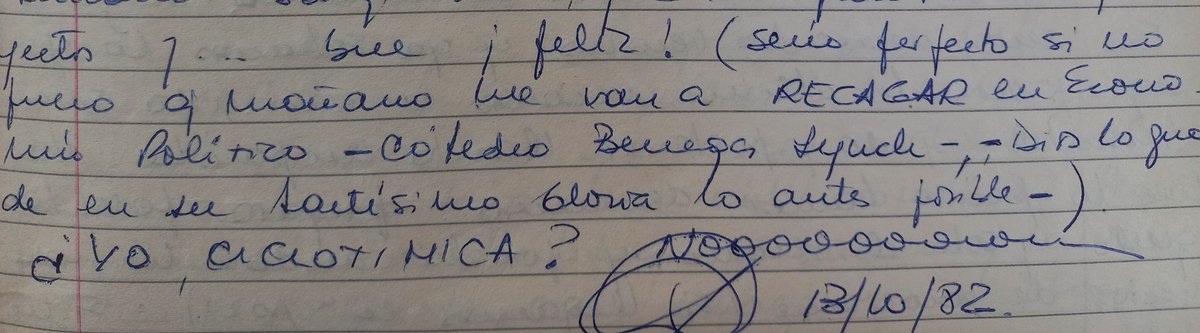 y... sike ¡feliz! (sería perfecto si no
fuera q' mañana me van a RECAGAR en Econo
mía Política -Cátedra Benegas Lynch-, -Dios lo guar
de en su Santísima Gloria lo antes posible-)
¿YO, CICLOTIMICA? NOOOOOOOOOO
13/10/82.